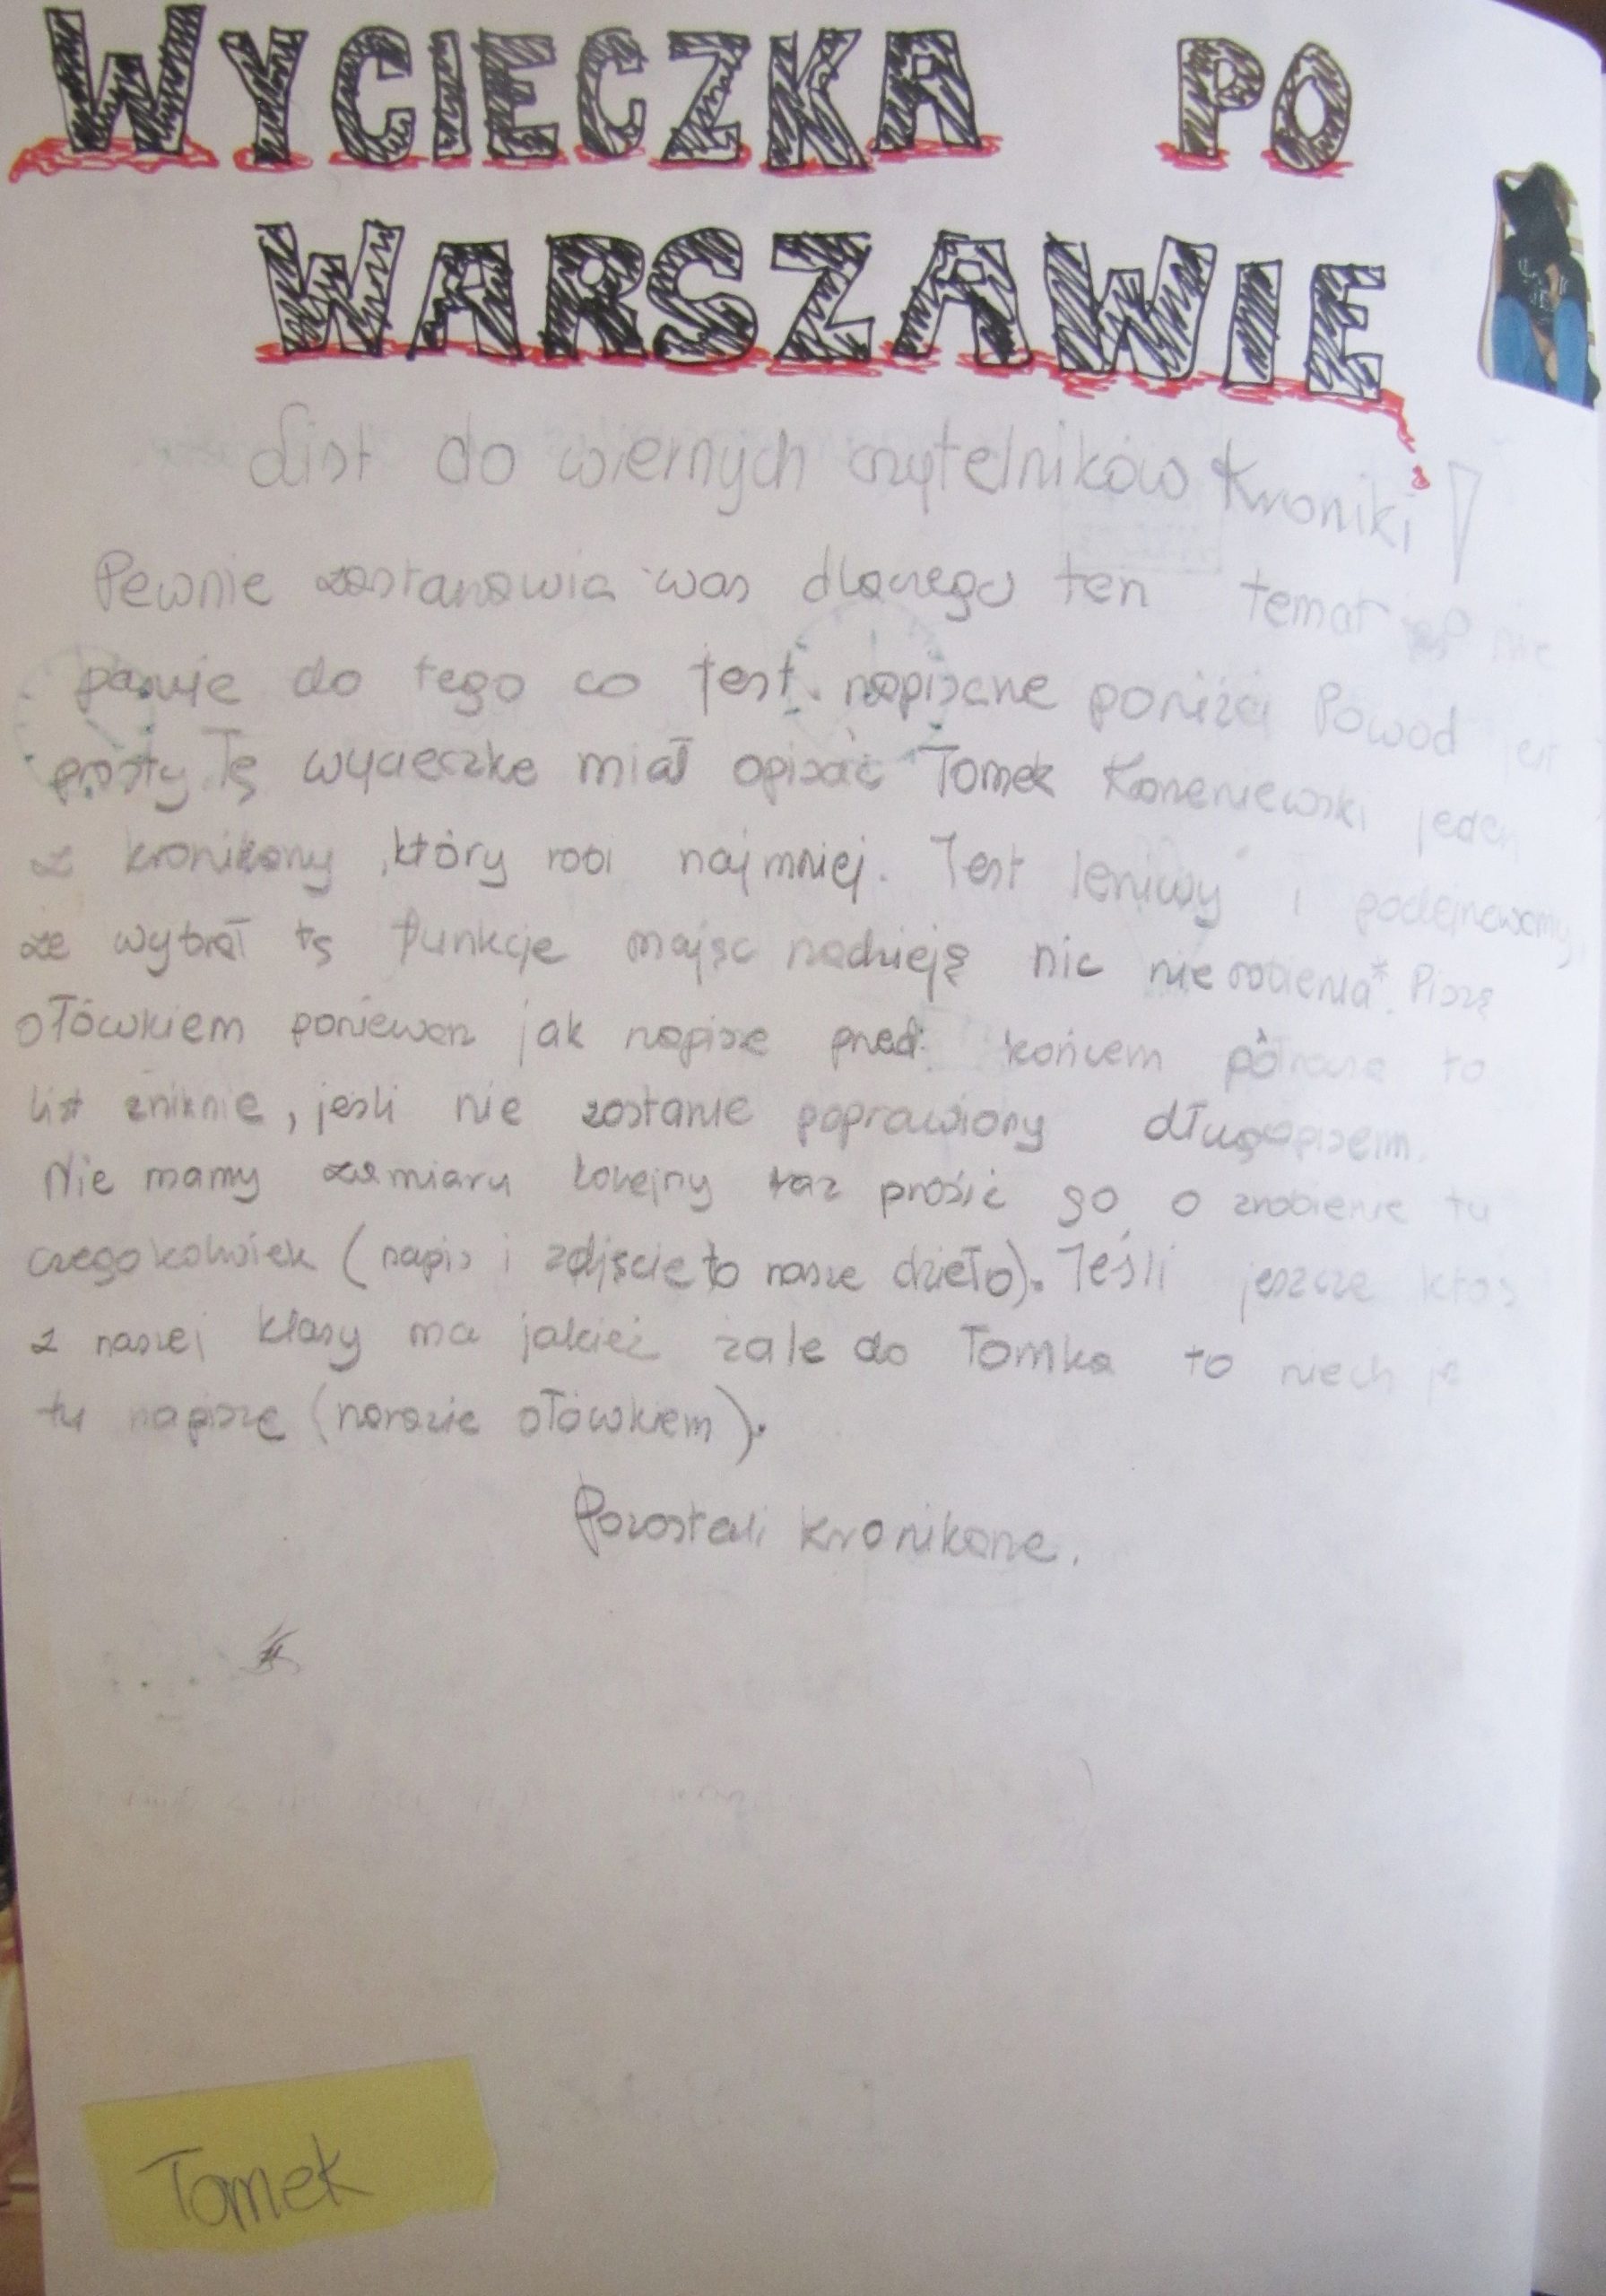 WYCIECZKA PO
WARSZAWIE
List do wiernych czytelników Kroniki!
Pewnie zastanawia was dlaczego ten temat nie
pasuje do tego co jest napisane poniżej Powód jest
prosty. Tę wycieczkę miał opisać Tomek Korzeniewski jeden
z kronikarzy, który robi najmniej. Jest leniwy i podejrzewamy,
że wybrał tę funkcję mając nadzieję nic nie robienia*. Piszę
ołówkiem ponieważ jak napisze przed końcem to
list zniknie, jeśli nie zostanie poprawiony długopisem.
Nie mamy zamiaru kolejny raz prosić go o zrobienie tu
czegokolwiek (napis i zdjęcie to nasze dzieło). Jeśli jeszcze ktoś
z naszej klasy ma jakieś żale do Tomka to niech je
tu napisze (narazie ołówkiem).
Pozostali kronikarze.
Tomek